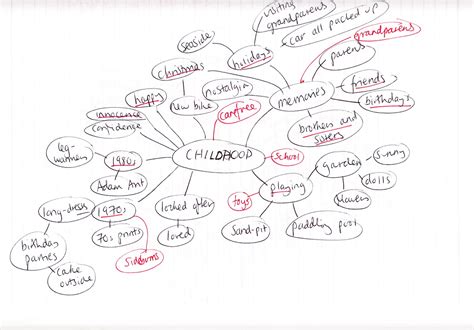 visiting
grandparents
car all packed up
grandparens
seaside
holidays
parens
christmas
nostalgia
memories
friends
birthdays
happy
new bike
carefree
innocence
confidence
brothers and
sisters
leg-
warmers
1980s
CHILDHOOD
school
garden
sunny
Adam Ant
playing
dolls
toys
flowers
long-dress
1970s
looked after
birthday
parties
70s prints
loved
sand-pit
paddling pool
cake
outside